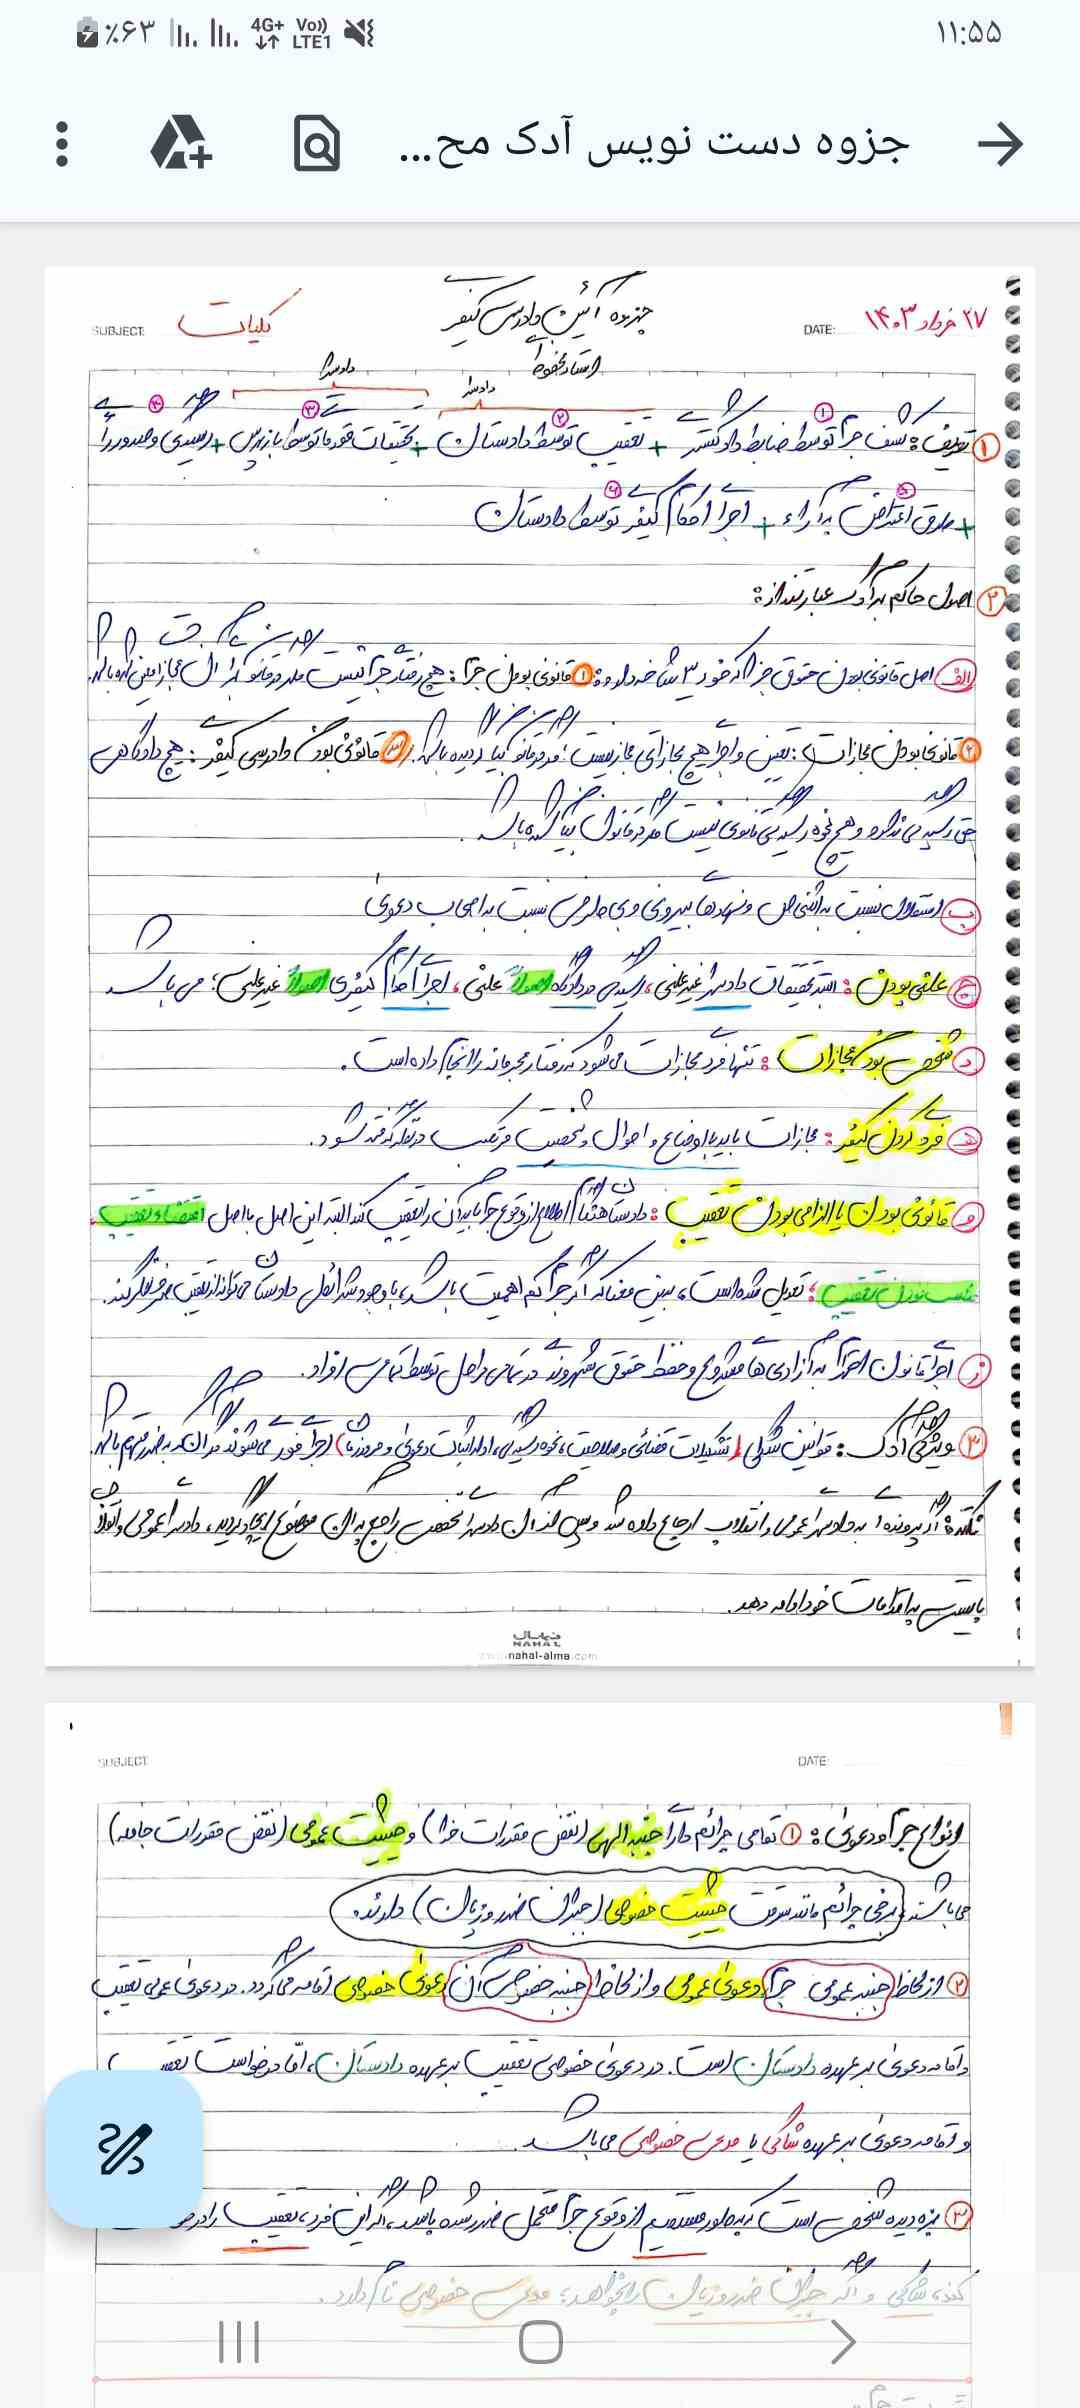 ۱۱:۵۵
4G+ Vo)) LTE1 ٪۶۳
جزوه دست نویس آدک مح...
DATE: ۲۷ خرداد ۱۴۰۳ جزوه آئین دادرسی کیفری SUBJECT: کلیات
دادسرا دادسرا
① تعریف: کشف جرم توسط ضابط دادگستری + تعقیب توسط دادستان + تحقیقات مقدماتی توسط بازپرس + رسیدگی و صدور رأی
+ طرق اعتراض به آراء + اجرای احکام کیفری توسط دادستان
② اصول حاکم بر آدک عبارتند از:
الف اصل قانونی بودن حقوق جزا که خود ۳ شاخه دارد: ① قانونی بودن جرم: هیچ رفتاری جرم نیست مگر در قانون برای آن مجازات معین شده باشد.
② قانونی بودن مجازات: تعیین و اجرای هیچ مجازاتی مجاز نیست مگر در قانون بیان گردیده باشد. ③ قانونی بودن دادرسی کیفری: هیچ دادگاهی
حق رسیدگی ندارد و هیچ نحوه رسیدگی قانونی نیست مگر در قانون بیان شده باشد.
ب استقلال نسبت به اشخاص و نهادهای بیرونی و بی طرفی نسبت به اصحاب دعوی
ج علنی بودن: البته تحقیقات دادسرا غیرعلنی، رسیدگی در دادگاه اصولاً علنی، اجرای احکام کیفری اصولاً غیرعلنی؛ می باشد
د شخصی بودن مجازات: تنها فردی مجازات می شود که رفتار مجرمانه را انجام داده است.
هـ فردی کردن کیفر: مجازات باید با اوضاع و احوال و شخصیت مرتکب در نظر گرفته شود.
و قانونی بودن یا الزامی بودن تعقیب: دادستان هنگام اطلاع از وقوع جرم باید آن را تعقیب کند البته این اصل با اصل اقتضاء تعقیب
مناسب بودن تعقیب؛ تعدیل شده است، بدین معنا که اگر جرم کم اهمیت باشد، با وجود شرائطی دادستان می تواند از تعقیب صرف نظر کند.
ز اجرای قانون احترام به آزادی های مشروع و حفظ حقوق شهروندی در تمامی مراحل توسط تمامی افراد.
③ ویژگی آدک: قوانین شکلی (تشکیلات قضائی و صلاحیت، نحوه رسیدگی، ادله اثبات دعوی و مرور زمان) اجرا فوری می شوند مگر آن که به ضرر متهم باشد
نکته: اگر پرونده ای به دادسرای عمومی و انقلاب ارجاع داده شد و پس از آن دادسرای تخصصی راجع به آن موضوع ایجاد گردید، دادسرای عمومی و انقلاب
بایستی به اقدامات خود ادامه دهد.
نهـال
NAHAL
www.nahal-alma.com
SUBJECT: DATE:
انواع جرم و دعوی: ① تمامی جرائم دارای جنبه الهی (نقض مقررات خدا) و حیثیت عمومی (نقض مقررات جامعه)
می باشند برخی جرائم مانند سرقت حیثیت خصوصی (جبران ضرر و زیان) دارند.
② از لحاظ جنبه عمومی جرم دعوی عمومی و از لحاظ جنبه خصوصی آن دعوی خصوصی اقامه می گردد. در دعوی عمومی تعقیب
و اقامه دعوی بر عهده دادستان است. در دعوی خصوصی تعقیب بر عهده دادستان، امّا درخواست تعقیب
و اقامه دعوی بر عهده شاکی یا مدعی خصوصی می باشد.
③ بزه دیده شخصی است که به طور مستقیم از وقوع جرم متحمل ضرر شده باشد، اگر این فرد، تعقیب را
کند، شاکی و اگر جبران ضرر و زیان را بخواهد؛ مدعی خصوصی نام دارد.